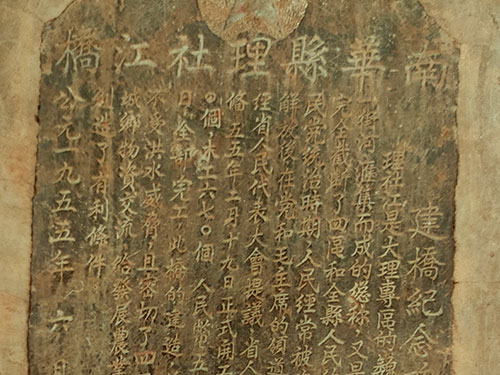 南華縣理社江橋
建橋紀念
理社江是大理專區的
河滙集而成的總稱，又是
完全截斷了四區和全縣人民
民党統治時期，人民經常被
解放后，在党和毛主席的領導
經省人民代表大會提議省人
五五年二月十九日正式開工
0個木工六七0個 人民幣五
日全部完工，此橋的建造，
不受洪水威脅，且密切了四
城鄉物資交流，給發展農業
創造了有利條件
公元一九五五年 六月